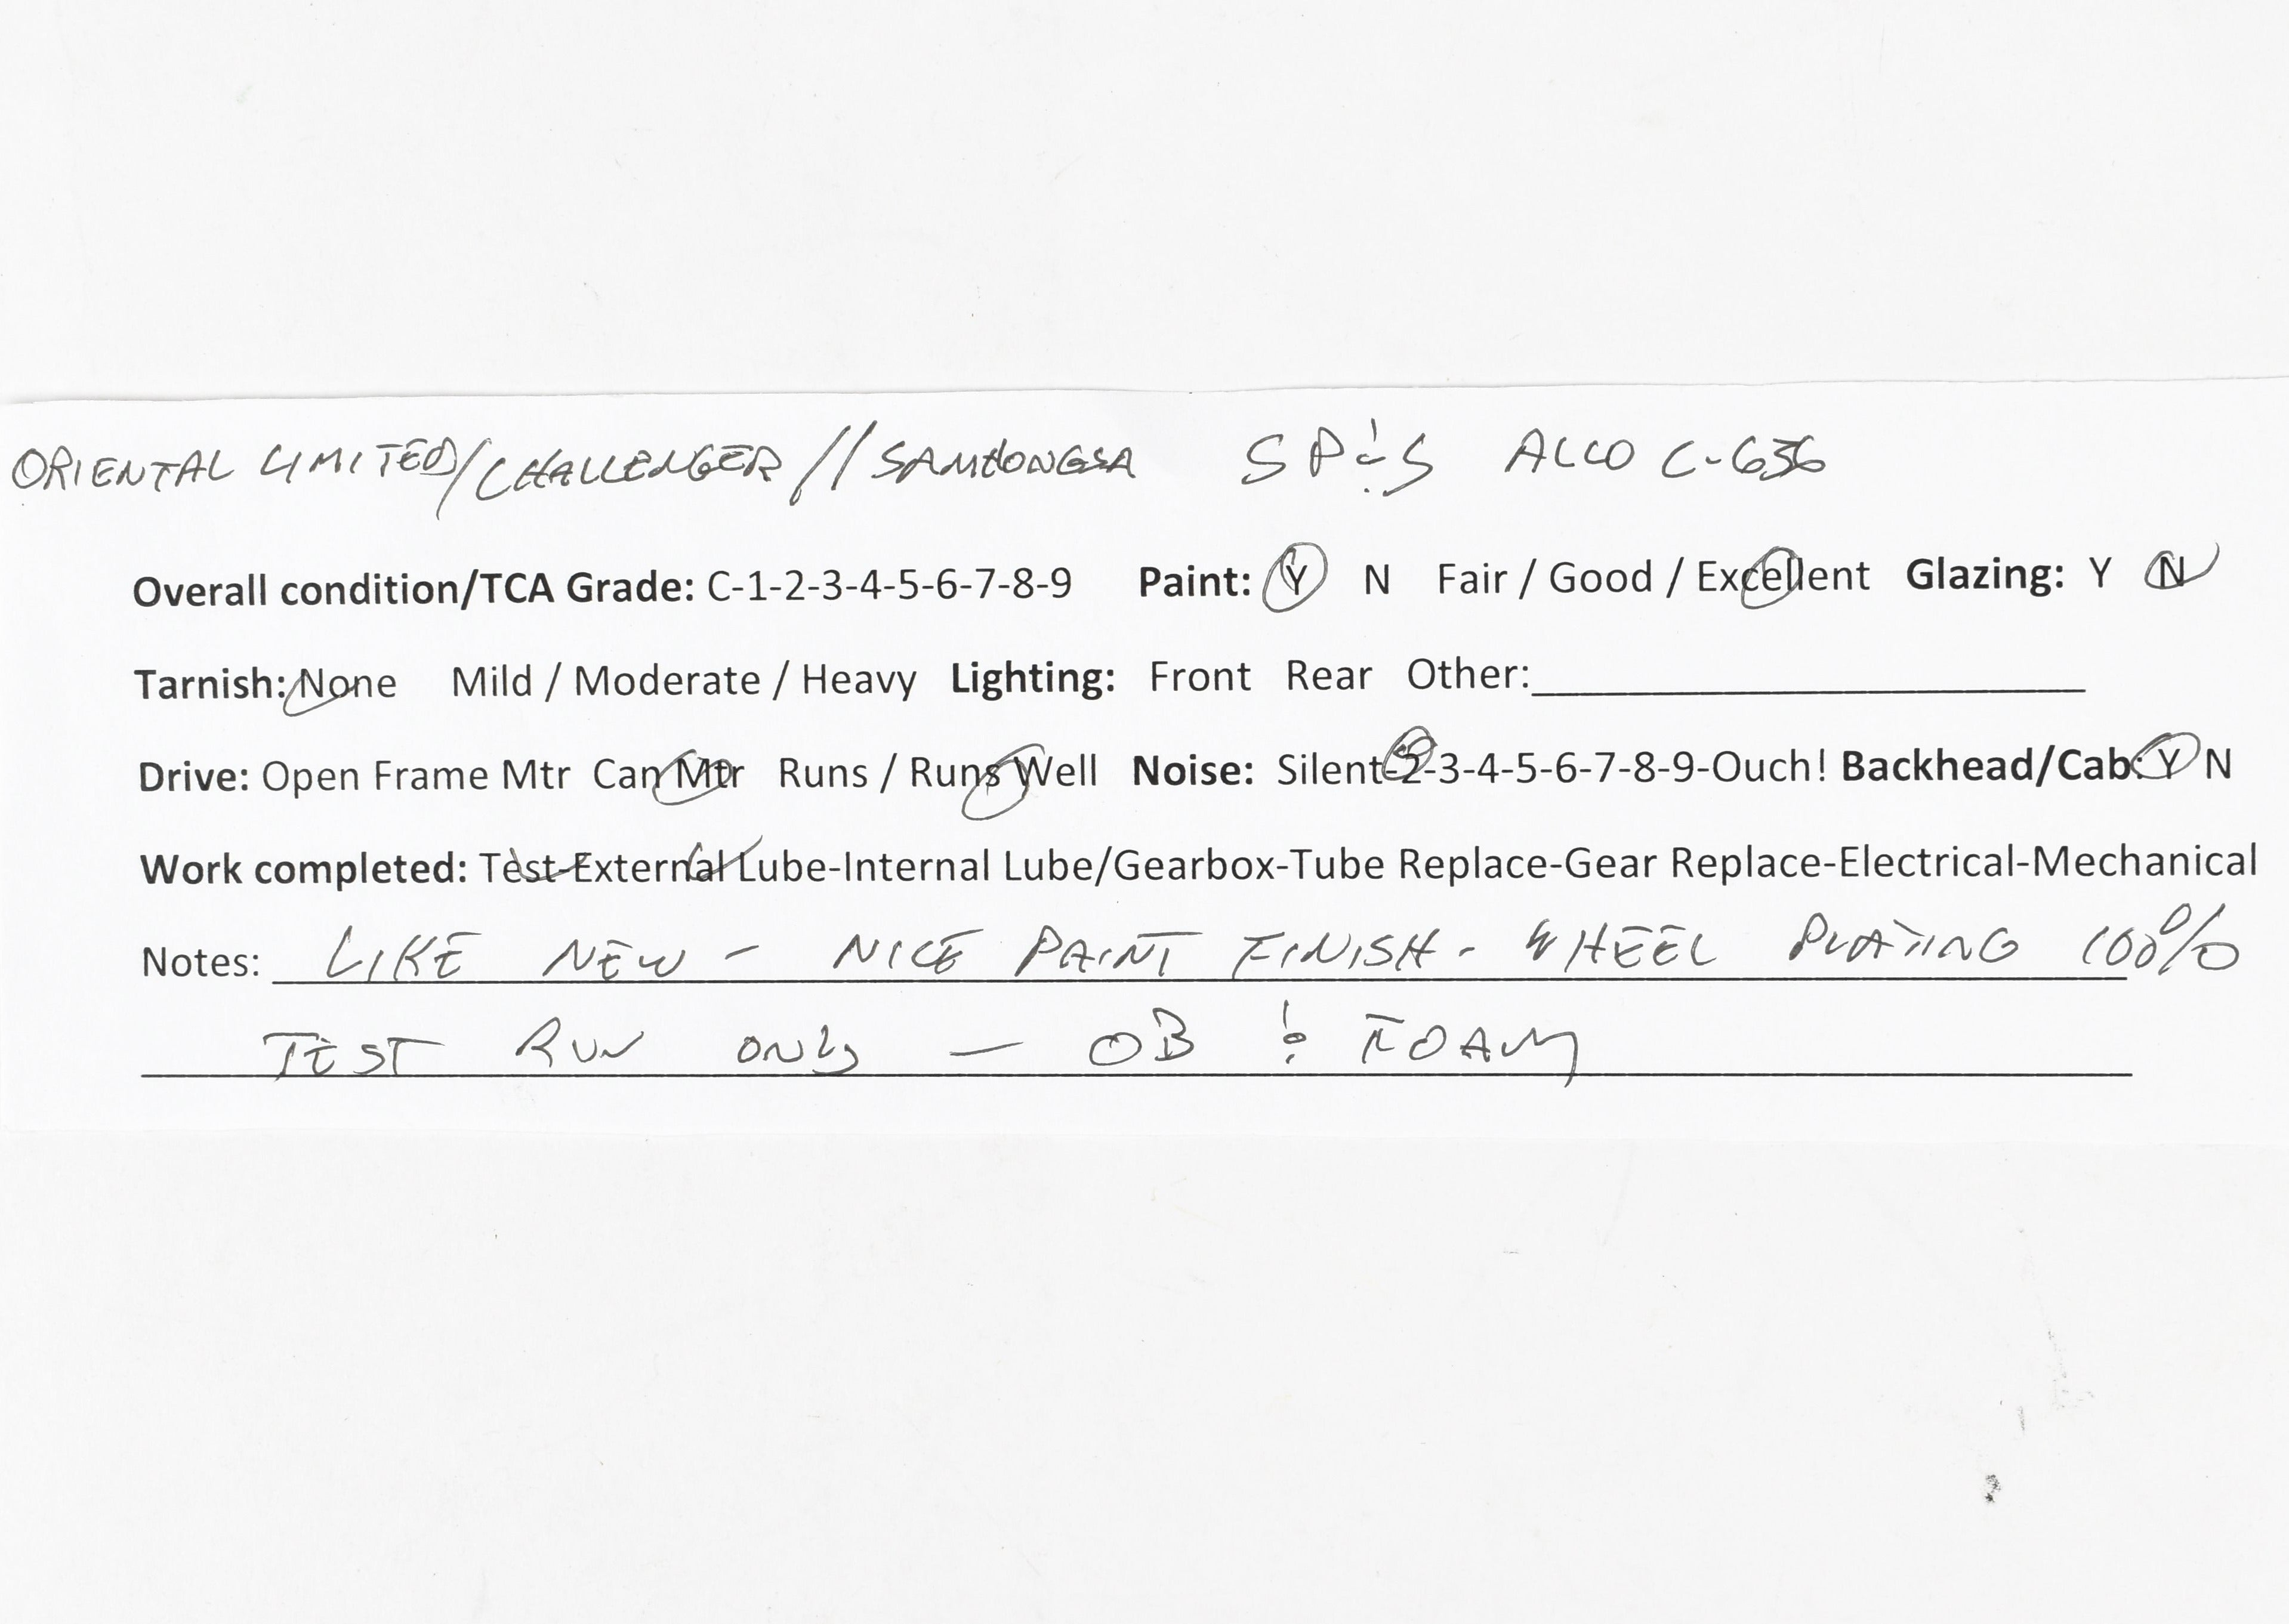 ORIENTAL LIMITED/CHALLENGER//SAMDONGSA SP&S ALCO C-636
Overall condition/TCA Grade: C-1-2-3-4-5-6-7-8-9 Paint: Y N Fair / Good / Excellent Glazing: Y N
Tarnish: None Mild / Moderate / Heavy Lighting: Front Rear Other:
Drive: Open Frame Mtr Can Mtr Runs / Runs Well Noise: Silent-2-3-4-5-6-7-8-9-Ouch! Backhead/Cab: Y N
Work completed: Test-External Lube-Internal Lube/Gearbox-Tube Replace-Gear Replace-Electrical-Mechanical
Notes: LIKE NEW - NICE PAINT FINISH - WHEEL PLATING 100%
TEST RUN ONLY — OB & FOAM